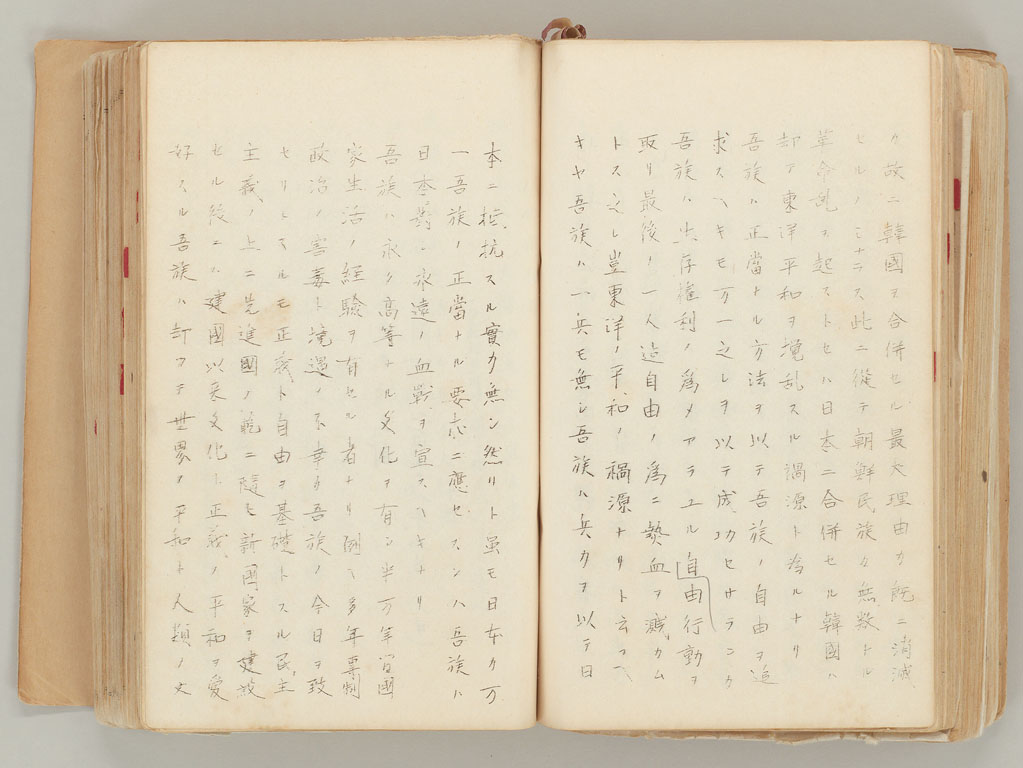 ク故ニ韓國ヲ合併セル最大理由カ既ニ消滅
セルノミナラス此ニ從テ朝鮮民族カ無数ナル
革命乱ヲ起ストセハ日本ニ合併セル韓國ハ
却テ東洋平和ヲ攪乱スル禍源ト為ルナリ
吾族ハ正當ナル方法ヲ以テ吾族ノ自由ヲ追
求スヘキモ万一之レヲ以テ成功セサランカ
吾族ハ生存権利ノ為メアラユル自由行動ヲ
取リ最後ノ一人迄自由ノ為ニ熱血ヲ濺カム
トス之レ豈東洋ノ平和ノ禍源ナリト云フヘ
キヤ吾族ハ一兵モ無シ吾族ハ兵力ヲ以テ日
本ニ抵抗スル實力無シ然リト虽モ日本カ万
一吾族ノ正當ナル要志ニ應セスンハ吾族ハ
日本對シ永遠ノ血戰ヲ宣スヘキナリ
吾族ハ永ク高等ナル文化ヲ有シ半万年間國
家生活ノ経驗ヲ有セル者ナリ例ヘ多年專制
政治ノ害毒ト境遇ノ不幸カ吾族ノ今日ヲ致
セリトスルモ正義ト自由ヲ基礎トスル民主
主義ノ上ニ先進國ノ範ニ隨ヒ新國家ヲ建設
セル後ニハ建國以来文化ト正義ノ平和ヲ愛
好スル吾族ハ却ツテ世界ノ平和ト人類ノ文